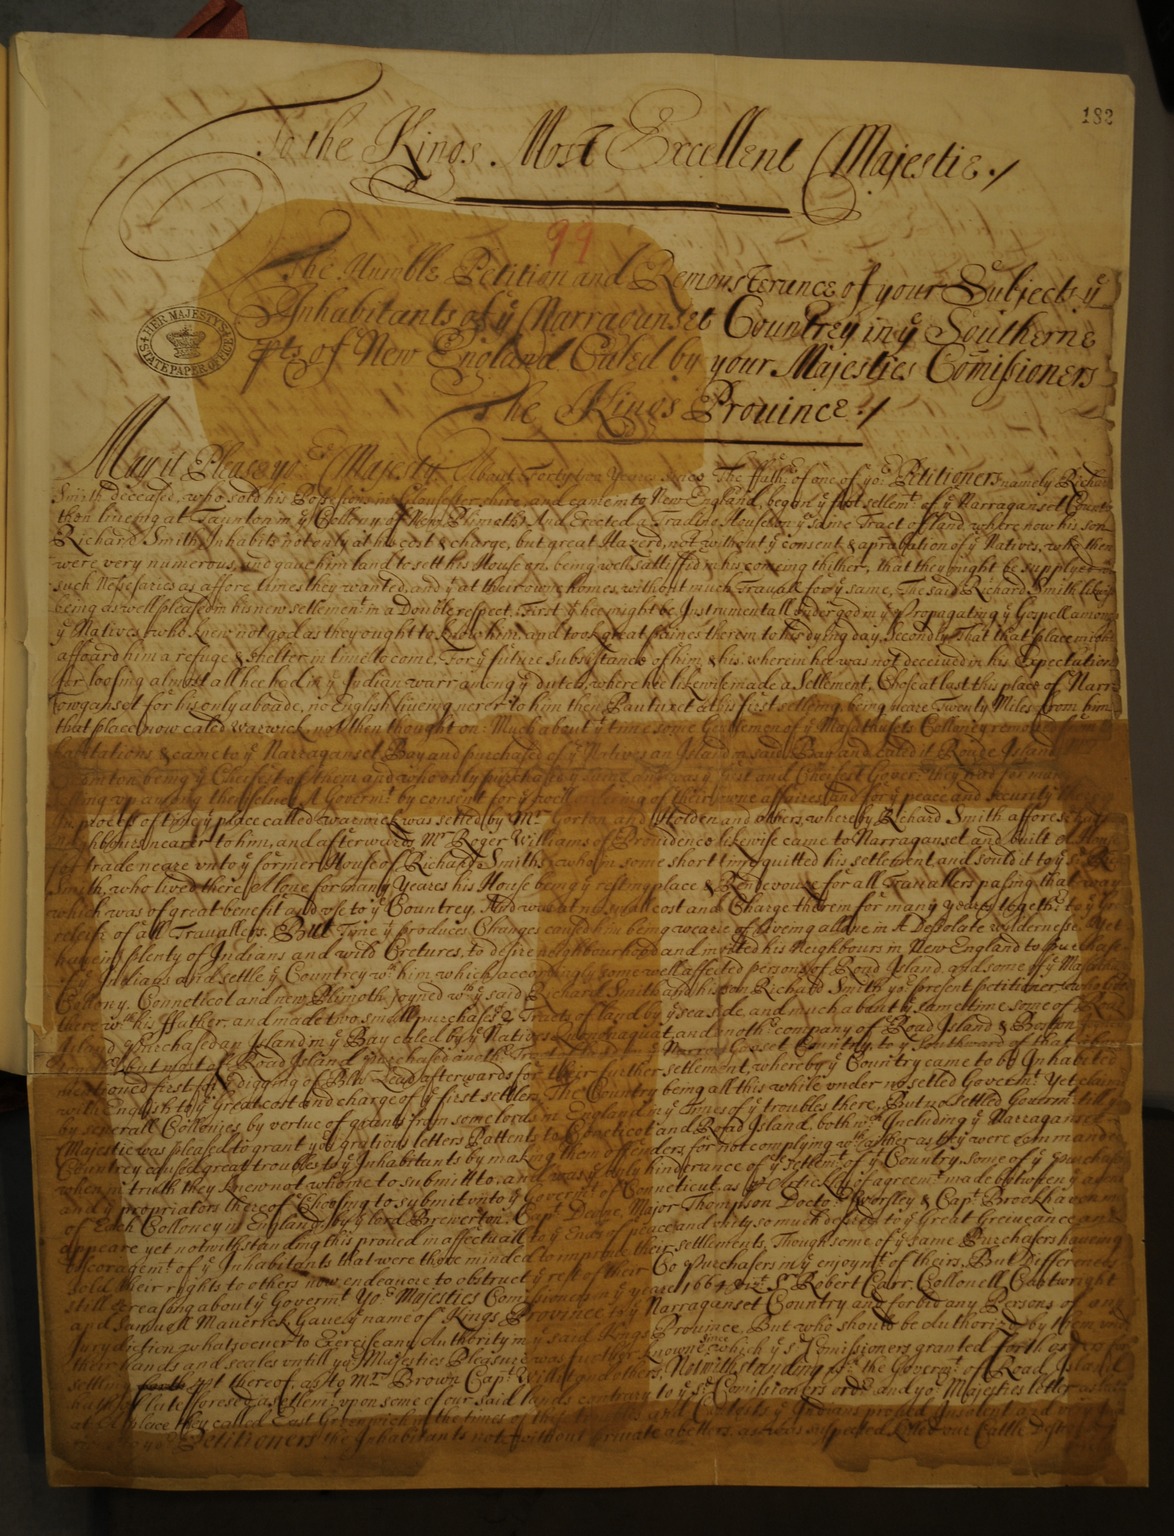 182
To the Kings Most Excellent Majestie./
99
The Humble Petition and Remonsterance of your Subjects yͤ
Inhabitants of yͤ Narraganset Countrey in yͤ Southerne
pts of New England Caled by your Majesties Comissioners
The Kings Province./
HER MAJESTY'S STATE PAPER OFFICE
May it Please yoʳ Majesty About Forty two Years since The ffathʳ of one of yoʳ Petitioners namely Richard
Smith deceased, who sold his Possesions in Glousester shire, and came into New England, began yͤ first settlemᵗ of yͤ Narraganset Country
then liveing at Taunton in yͤ Collony of New Plimoth, And Erected a Trading House on yͤ same Tract of land, where now his son
Richard Smith Inhabits not only at his cost & charge, but great Hazerd, not without yͤ consent & aprobation of yͤ Natives, who then
were very numerous, and gave him land to sett his House on, being well sattisfied in his comeing thither, that they might be supplyed
such Nessesaries as affore times they wanted, and yͭ at their owne homes, without much Travail for yͤ same, The said Richard Smith likewise
being as well pleased in his new settlement in a Double respect, First yͭ hee might be Instrumentall under god in yͤ Propagating yͤ Gospell among
yͤ Natives, who knew not god as they ought to know him, and took great paines therein to his dying day, Secondly That that place might
affoard him a refuge & shelter in time to come, For yͤ future Subsistance of him & his, wherein hee was not deceived in his Expectation
For loosing almost all hee had in yͤ Indian warr among yͤ dutch, where hee likewise made a Settlement, Chose at last this place of Narr
owganset for his only aboade, no English liveing nerer to him then Pautuxet at his first settling, being neare Twenty Miles from him
that place now caled Warwick, not then thought on: Much about yͤ time some Gentlemen of yͤ Majathusets Collony removed
habitations & came to yͤ Narraganset Bay and purchased of yͤ Natives an Island in said Bay and caled it Roade Island
being yͤ Cheifest of them and who only purchased yͤ same and was yͤ first and Cheifest Goverʳ they had for many
up among themselves A Govermᵗ by consent for yͤ well ordering of their owne affaires and for yͤ peace and securitie
In process of tyme yͤ place called Warwick was setled by Mʳ Gorton and Holden and others, whereby Richard Smith aforesaid
Neighbours nearer to him, and afterwards Mʳ Roger Williams of Providence likewise came to Narraganset and built a House
for trade neare unto yͤ former House of Richard Smiths, who in some short time quitted his setlement and sould it to yͤ sᵈ
Smith, who lived there Alone for many Yeares his House being yͤ resting place & Rendevouze for all Travallers passing that way
which was of great benefit and use to yͤ Countrey, And was at no small cost and Charge therein for many years togethʳ to yͤ
releife of all Travallers. But Tyme yͭ produces Changes caused him being wearie of liveing allone in A Desolate wildernesse
haveing plenty of Indians and wild Cretures, to desire neighbourhood and invited his Neighbours in New England to purchase
of yͤ Indians and settle yͤ Countrey wᵗʰ him, which accordingly some well affected persons of Road Island and some of yͤ Majathusets
Collony, Connetecot and new Plimoth, joyned wᵗʰ yͤ said Richard Smith and his son Richard Smith yoʳ present petitioner who lived
there wᵗʰ his Ffather, and made two small purchases Tracts of land by yͤ sea side, and much about yͤ same time some of Road
Island purchased an Island in yͤ Bay caled by yͤ Natives Quononaquat, and anothʳ company of Road Island & Boston
but most of Road Island purchased anothʳ Tract of land in yͤ Narraganset Countrey, to yͤ Southward of that
mentioned first for Digging of Black lead afterwards for their further settlement, whereby yͤ Countrey came to be Inhabited
with English to yͤ great cost and charge of yͤ first settlers, The Countrey being all this while under no setled Govermᵗ Yet
by severall Collonies by vertue of grants from some lords in England in yͤ Times of yͤ troubles there, But no settled Govermᵗ till
Majestie was pleased to grant yoʳ gratious letters Pattents to Conetecot and Road Island, both Including yͤ Narraganset
Countrey caused great troubles to yͤ Inhabitants by making them offenders, for not complying wᵗʰ as they were commanded
when in truth they knew not whome to submitt to, and was yͤ only hinderance of yͤ settlemᵗ of yͭ Countrey, some of yͤ purchasers
and yͤ propriators thereof Choosing to submit unto yͤ Govermᵗ of Conneticut, as pʳ Articles of agreemᵗ made between yͤ agents
of Each Colloney in England, by yͤ lord Brewerton, Capᵗ Deane, Major Thompson Doctoʳ Worsley & Capᵗ Brookhaven
appeare yet notwithstanding this proved in affectuall to yͤ End of peace and unity so much desired to yͤ Great Greivance and
discoragemᵗ of yͤ Inhabitants that were there minded to improve their settlements. Though some of yͤ same Purchasers haveing
sold their rights to others now endeavore to obstruct yͤ rest of their Co-purchasers in yͤ enjoymᵗ of theirs. But Differences
still Encreasing about yͤ Govermᵗ Yoʳ Majesties Comissioners in yͤ yeare 1664 vizᵗ Sʳ Robert Carr, Collonell Cartwright
and Samuell Maverick Gave yͤ name of Kings Province to yͤ Narraganset Country and forbid any Persons of
Jurydiction whatsoever to Exercise any Authority in yͤ said Kings Province, But who should be Authorized by them under
their hands and seales untill yoʳ Majesties Pleasure was further knowne since which yͤ sᵈ Comissioners granted forth orders for
settling pᵗ thereof, as to Mʳ Brown Capᵗ Willet and others, Notwithstanding the Govermᵗ of Road Island
hath of late fforced a settlemᵗ upon some of our said lands contrary to yͤ sᵈ Comissioners ordʳ and yoʳ Majesties letter
at a place they called East Greenwich in the times of these troubles and yͤ Indians proved Insolent and
Petitioners the Inhabitants not without private abettors, as was suspected, killed our Cattle